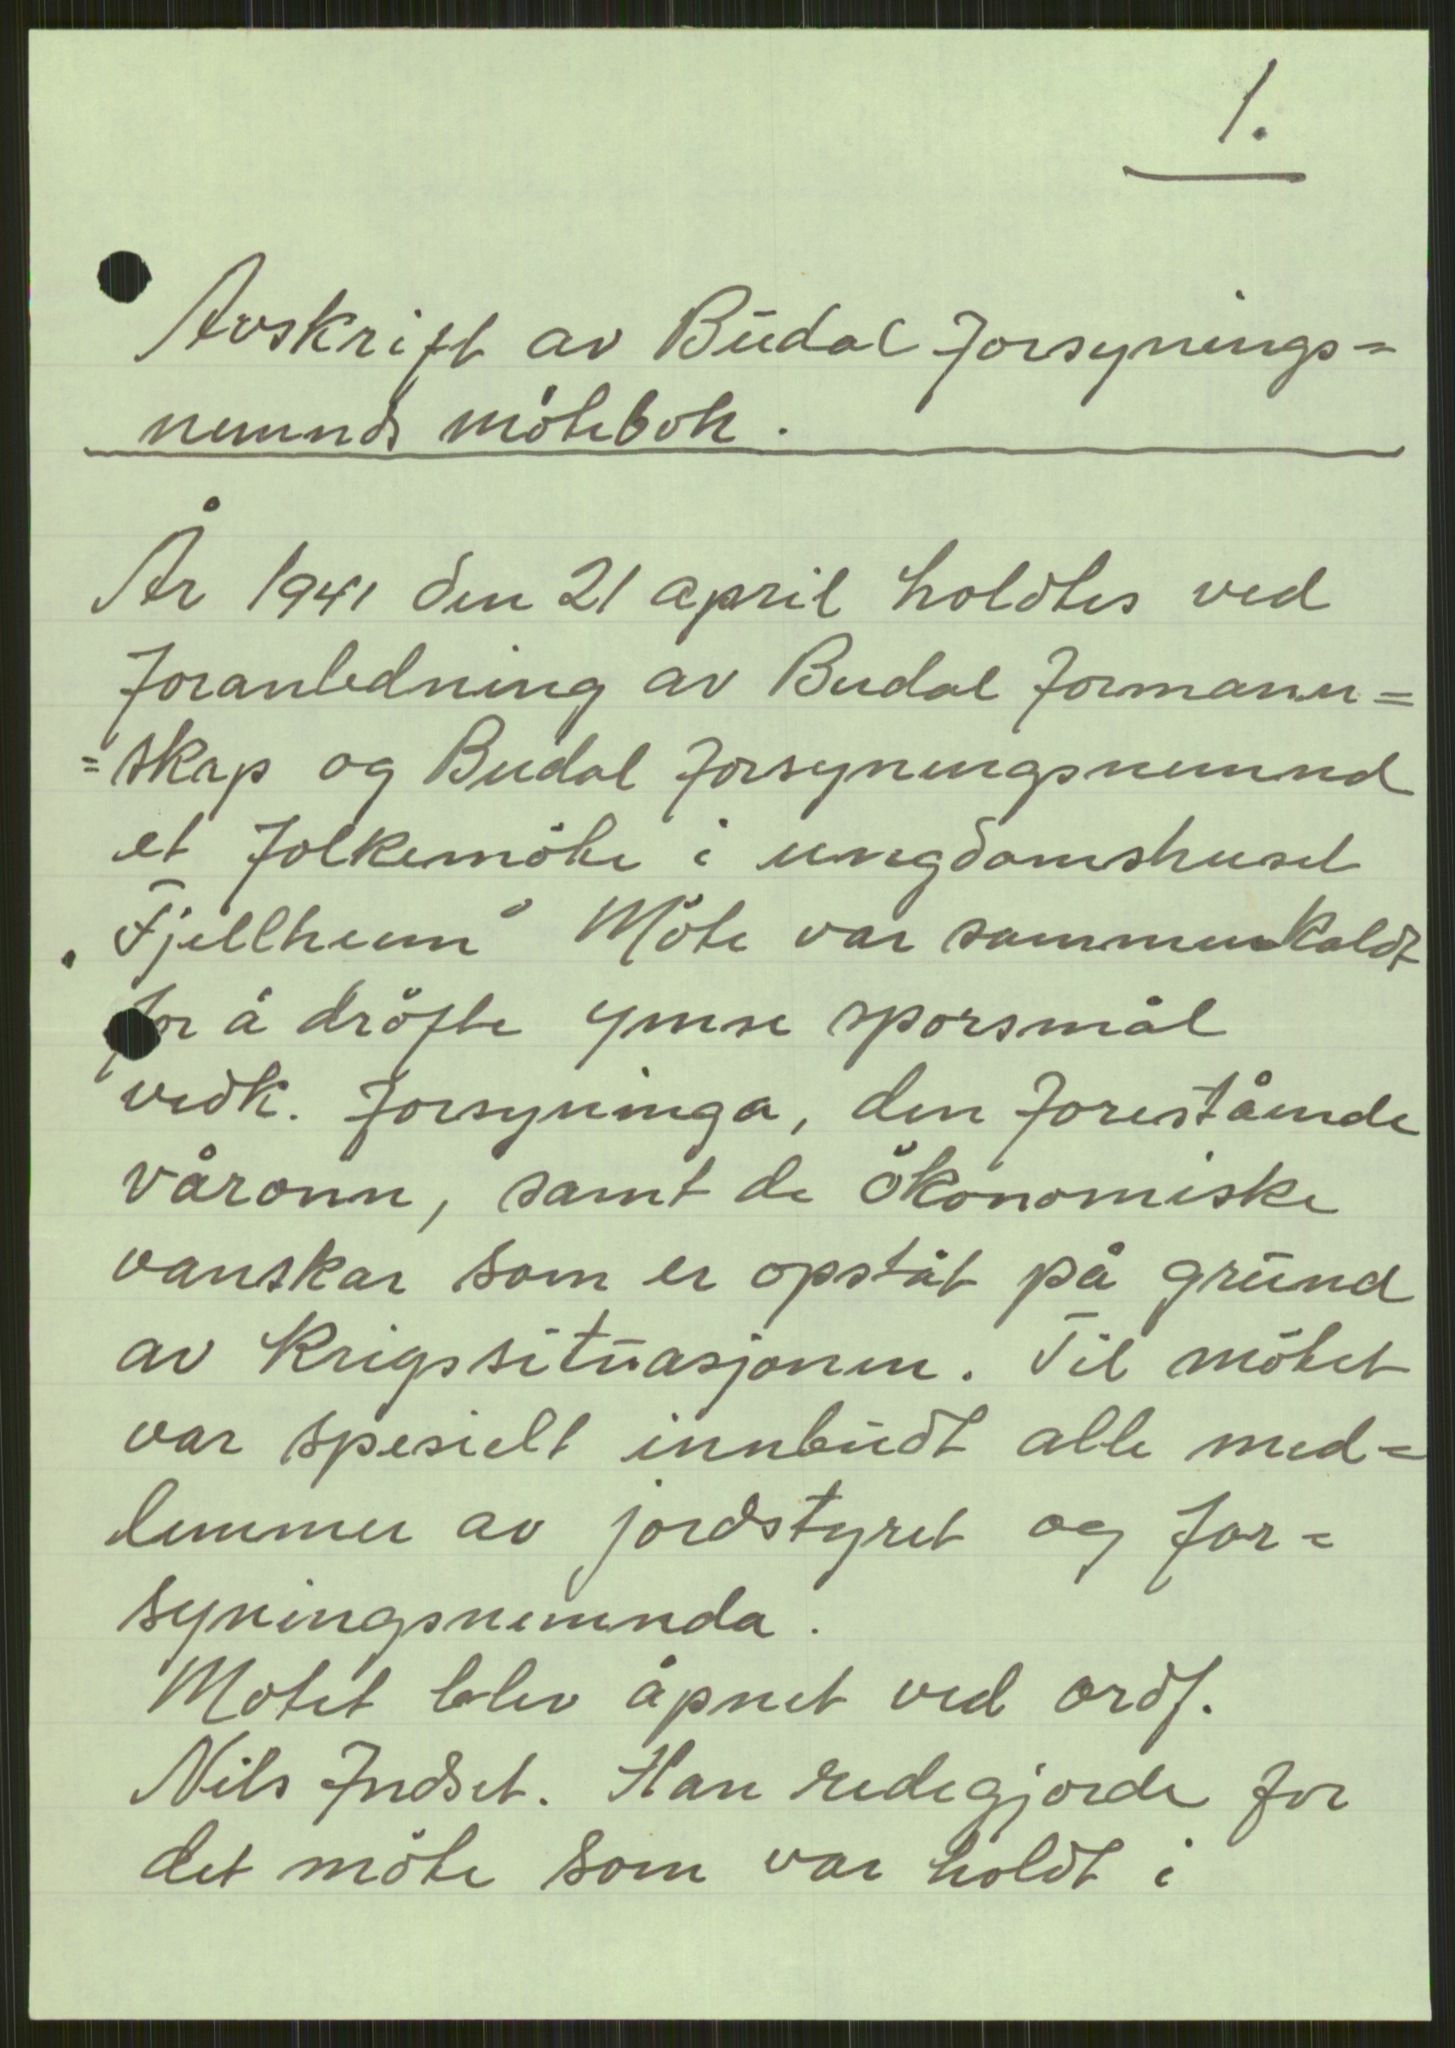 1.
Avskrift av Budal forsynings=
nemnds mötebok.
År 1941 den 21 april holdtes ved
foranledning av Budal formann=
=skap og Budal forsyningsnemnd
et folkemöte i ungdomshuset
"Fjellheim" Möte var sammenkaldt
for å dröfte ymse sporsmål
vedk. forsyninga, den forestående
våronn, samt de ökonomiske
vanskar som er opståt på grund
av krigssituasjonen. Til mötet
var spesielt innbudt alle med=
lemmer av jordstyret og for=
syningsnemnda.
Motet blev åpnet ved ordf.
Nils Indset. Han redegjorde for
det möte som var holdt i